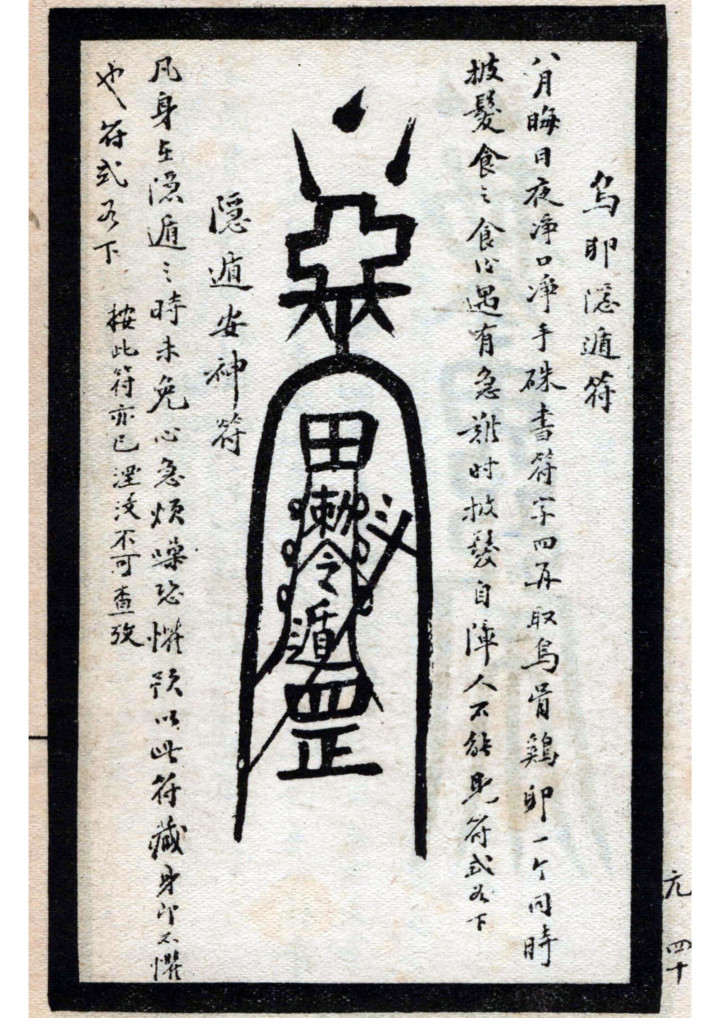 烏卵隱遁符
八月晦日夜淨口淨手硃書符字四再取烏骨鷄卵一个同時
披髮食之食后遇有急難时披髮自障人不能見符式如下
田
勅令
遁
罡
斗
隱遁安神符
凡身在隱遁之時未免心急煩噪恐懼預以此符藏身即不懼
也符式如下
按此符亦已湮没不可查攷
元 四十